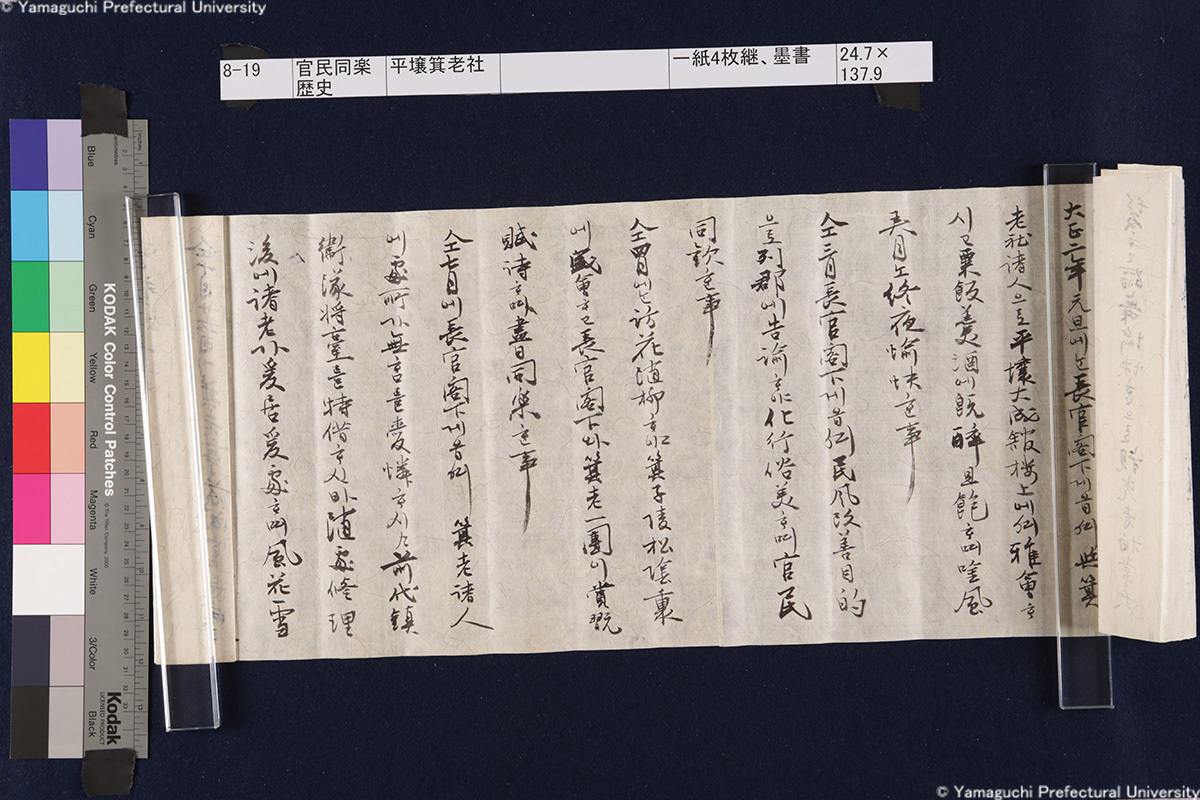 © Yamaguchi Prefectural University
8-19
官民同楽歴史
平壌箕老社
一紙4枚継、墨書
24.7×137.9
大正二年元旦에는長官閣下게압셔 此箕
老社諸人으로平壤大成館樓上에셔雅會
시고粟飯美酒에旣醉且飽하며吟風
弄月노終夜愉快한事
仝三月長官閣下게압셔民風改善目的
으로列郡에告諭하야化行俗美하며官民
同歡한事
仝四月에는訪花随柳하야箕子陵松陰裏
에盛會하고長官閣下와箕老一團이賞花
賦詩하며盡日同樂한事
仝七月에長官閣下게압셔 箕老諸人
에處所가無함을愛憐하시사前代鎭
衛隊將臺를特借하시와随處修理
後에諸老가爰居爰處하며風花雪
KODAK Color Control Patches
© The Tiffen Company, 2000
Kodak
LICENSED PRODUCT
Blue
Cyan
Green
Yellow
Red
Magenta
White
3/Color
Black
© Yamaguchi Prefectural University